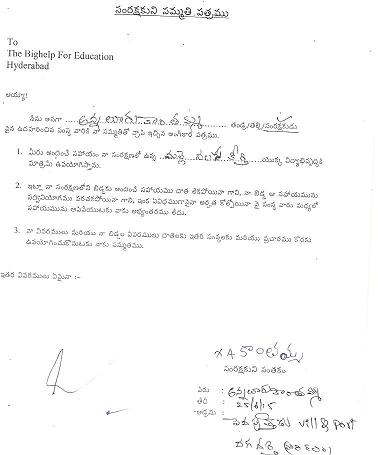 సంరక్షకుని సమ్మతి పత్రము
To
The Bighelp For Education
Hyderabad
అయ్యా!
నేను అనగా తండ్రి/తల్లి/సంరక్షకుడు
పైన ఉదహరించిన సంస్థ వారికి నా సమ్మతితో వ్రాసి ఇచ్చిన అంగీకార పత్రము.
1. మీరు అందించే సహాయం నా సంరక్షణలో ఉన్న యొక్క విద్యాభివృద్ధికి
మాత్రమే ఉపయోగిస్తాను.
2. ఇట్లూ నా సంరక్షణలోని బిడ్డకు అందించే సహాయము దాత లేకపోయినా గాని, నా బిడ్డ ఆ సహాయమును
సద్వినియోగము పరచకపోయినా గాని, ఇంక ఏవిధముగానైనా అర్హత కోల్పోయినా పై సంస్థ వారు మధ్యలో
సహాయమును ఆపివేయుటకు నాకు అభ్యంతరము లేదు.
3. నా వివరములు మరియు నా బిడ్డల వివరములు దాతలకు ఇతర సంస్థలకు మరియు ప్రచారము కొరకు
ఉపయోగించుకొనుటకు నాకు సమ్మతము.
ఇతర వివరములు ఏమైనా :-
సంరక్షకుని సంతకం
పేరు :
తేది : 25/6/15
అడ్రసు :
vill & post